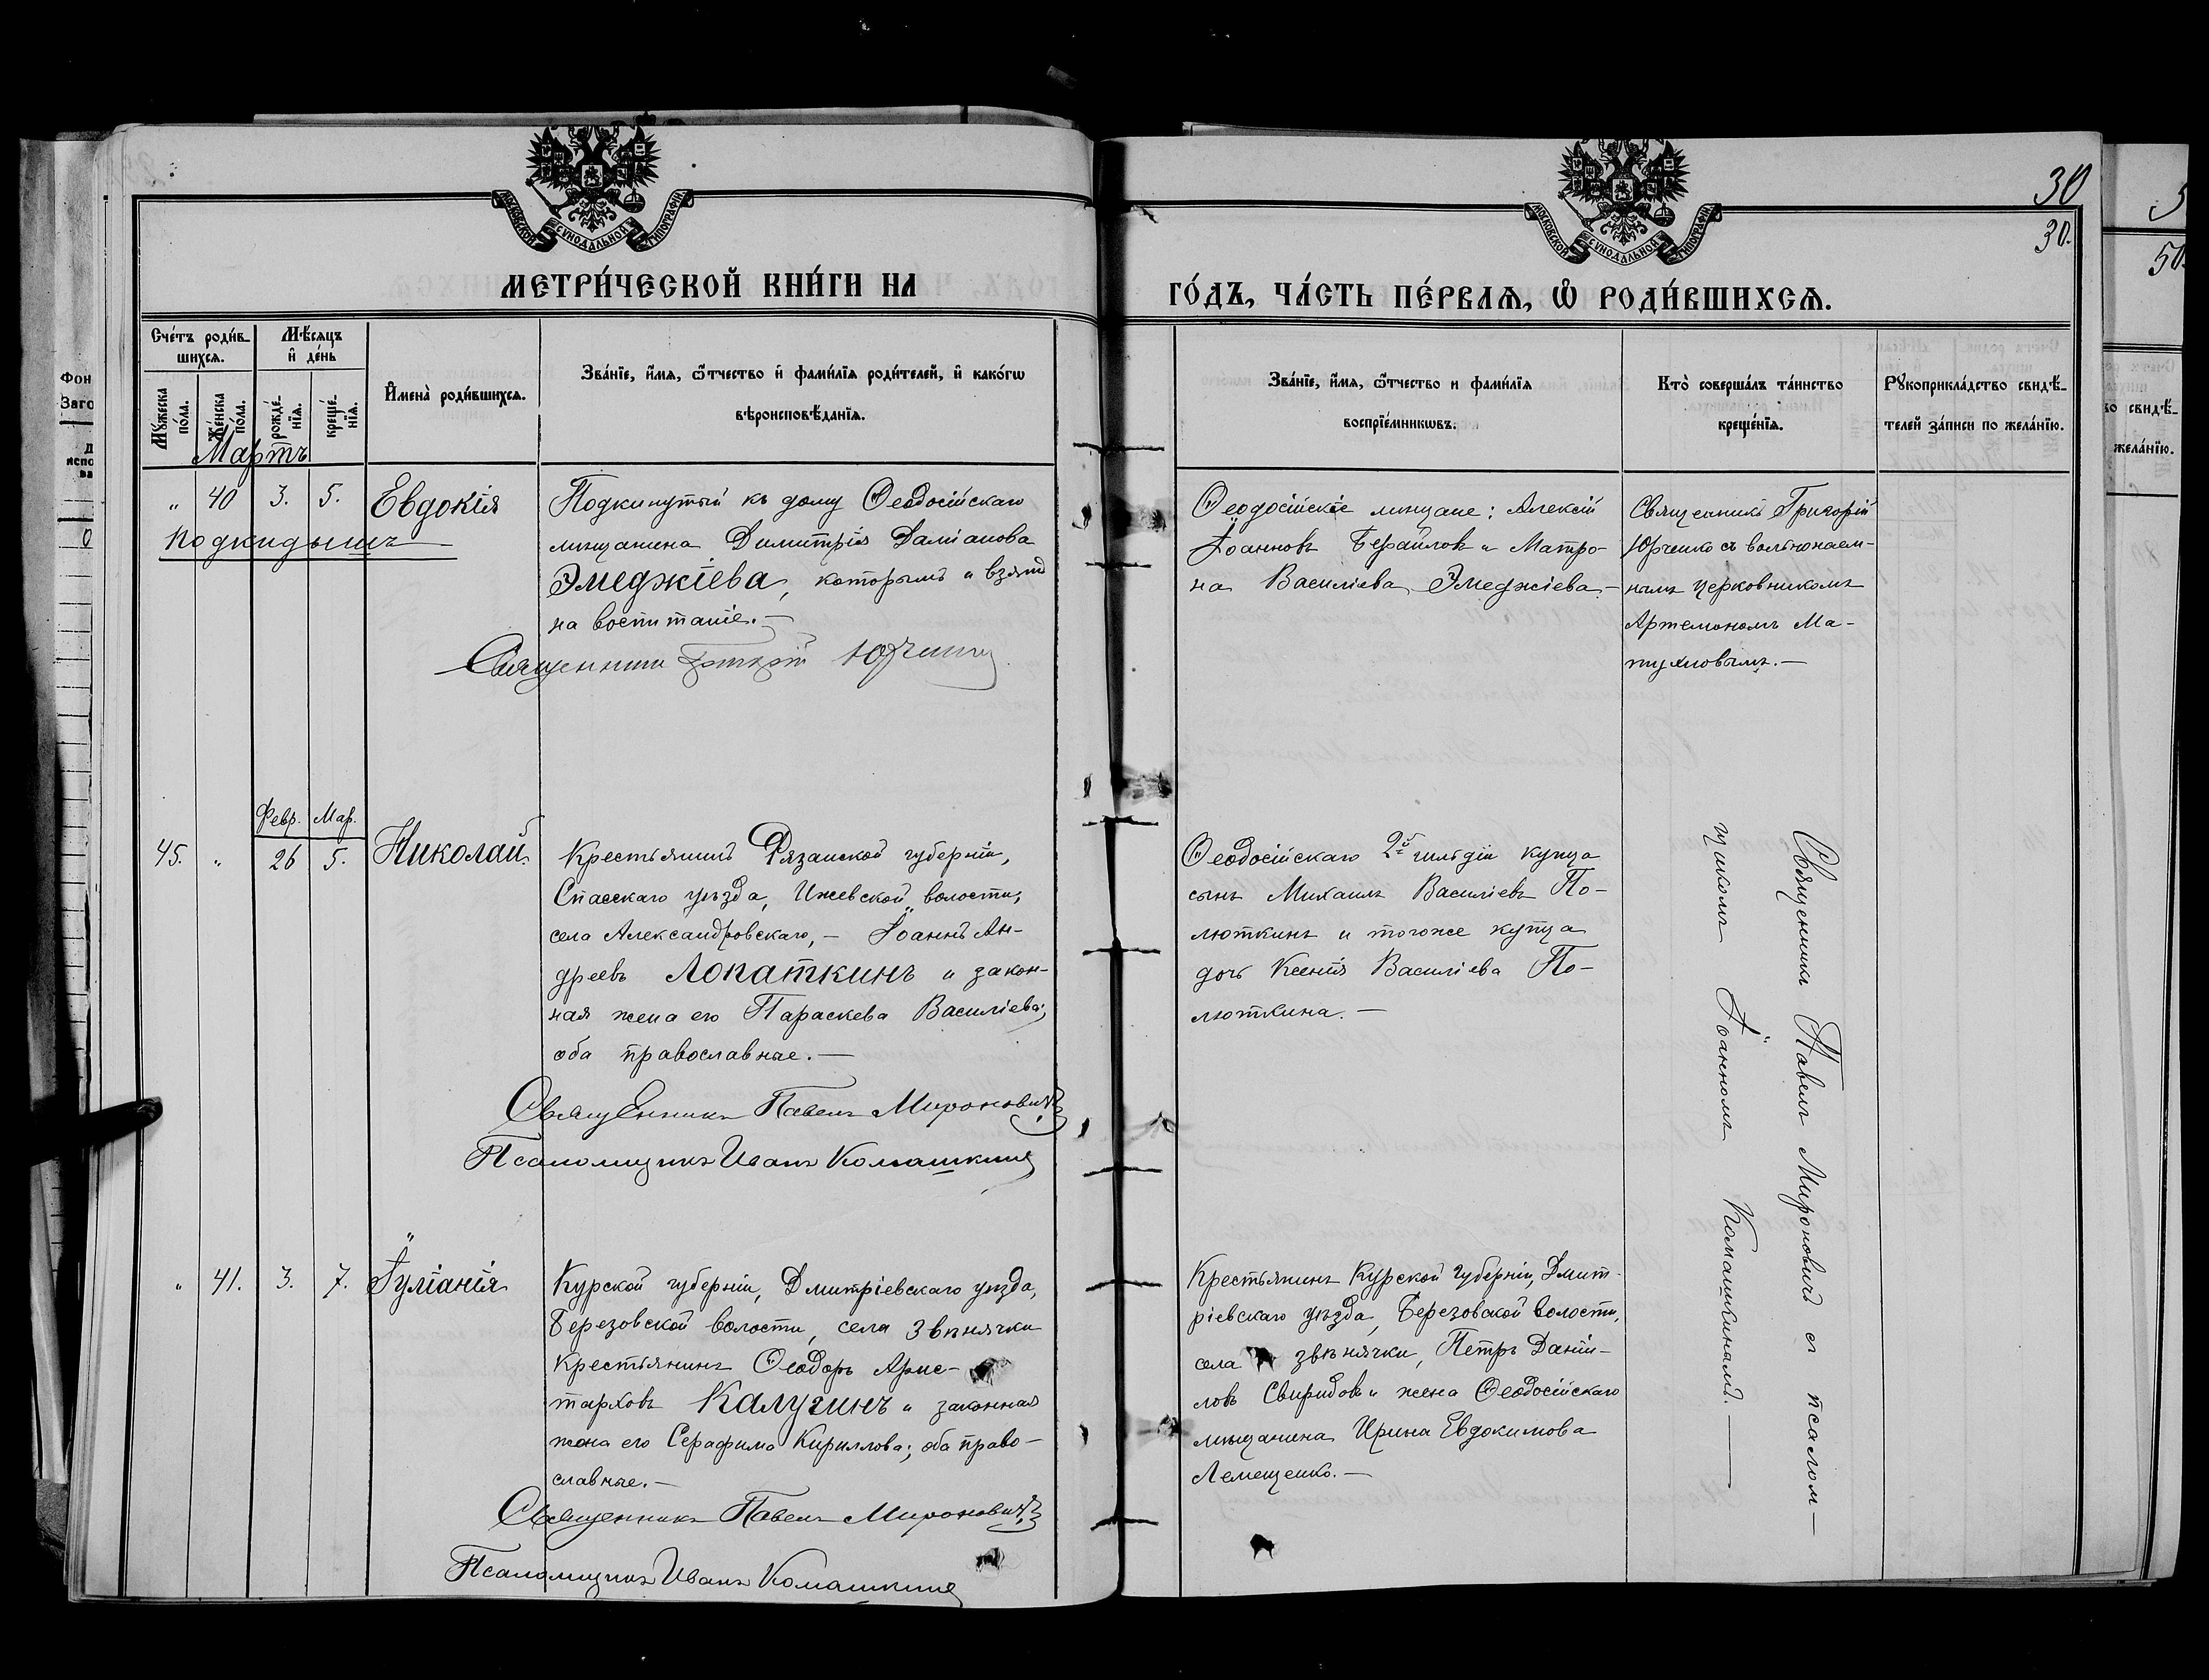 30
30.
50.
МОСКОВСКОЙ СѴНОДАЛЬНОЙ ТИПОГРАФІИ
МОСКОВСКОЙ СѴНОДАЛЬНОЙ ТИПОГРАФІИ
МЕТРИ́ЧЕСКОЙ КНИ́ГИ НА
ГО́ДЪ, ЧА́СТЬ ПЕ́РВАѦ, Ѡ҆ РОДИ́ВШИХСѦ.
Сче́тъ роди́в-
шихсѧ.
Мѣ́сѧцъ
и҆ де́нь
Мꙋ́жеска по́ла.
Же́нска по́ла.
рожде́нїѧ.
креще́нїѧ.
И҆мена̀ роди́вшихсѧ.
Зва́нїе, и҆́мѧ, ѻ҆́тчество и҆ фами́лїѧ роди́телей, и҆ како́гѡ
вѣроисповѣ́данїѧ.
Зва́нїе, и҆́мѧ, ѻ҆́тчество и фами́лїѧ
воспрїе́мникѡвъ.
Кто̀ соверша́лъ та́инство
креще́нїѧ.
Рꙋкоприкла́дство свидѣ́-
телей за́писи по жела́нїю.
Мартъ
" 40 3. 5. Евдокія
подкидышъ
Подкинутый къ дому Ѳеодосійскаго
мѣщанина Димитрія Даміанова
Эмеджіева, которымъ и взятъ
на воспитаніе.—
Священникъ Григорій Юрченко
Ѳеодосійскіе мѣщане: Алексій
Іоанновъ Берайловъ и Матро-
на Василіева Эмеджіева.—
Священникъ Григорій
Юрченко съ вольнонаем-
нымъ церковникомъ
Артемономъ Ма-
Февр. Мар.
45. " 26 5. Николай
Крестьянинъ Рязанской губерніи,
Спасскаго уѣзда, Ижевской волости,
села Александровскаго,— Іоаннъ Ан-
дреевъ Лопаткинъ и закон-
ная жена его Параскева Василіева;
оба православные.—
Священникъ Павелъ Мироновичъ
Псаломщикъ Иванъ Комашкинъ
Ѳеодосійскаго 2й гильдіи купца
сынъ Михаилъ Василіевъ По-
люткинъ и тогоже купца
дочь Ксенія Василіева По-
люткина.—
Священникъ Павелъ Мироновичъ съ псалом-
щикомъ Іоанномъ Комашкинымъ.—
" 41. 3. 7. Іуліанія
Курской губерніи, Дмитріевскаго уѣзда,
Березовской волости, села Звѣнячки
крестьянинъ Ѳеодоръ Арис-
тарховъ Калугинъ и законная
жена его Серафима Кириллова; оба право-
славные.—
Священникъ Павелъ Мироновичъ
Псаломщикъ Иванъ Комашкинъ
Крестьянинъ Курской губерніи, Дмит-
ріевскаго уѣзда, Березовской волости,
села Звѣнячки, Петръ Даніи-
ловъ Свиридовъ и жена Ѳеодосійскаго
мѣщанина Ирина Евдокимова
Лемещенко.—